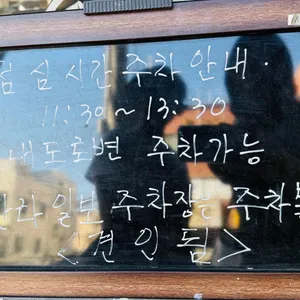 점심시간 주차안내.
11:30~13:30
내도로변 주차가능
일부 주차장은
<견인됨>